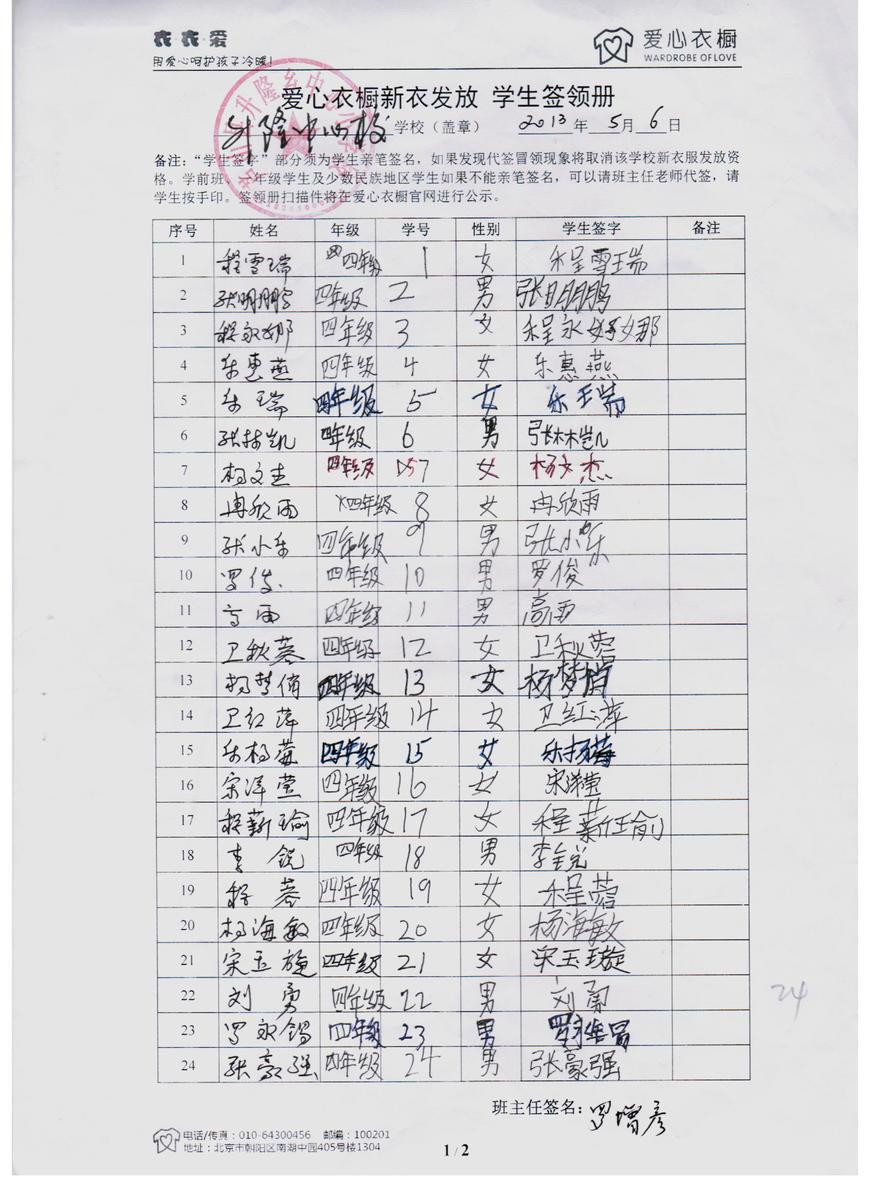 衣·衣·爱
用爱心呵护孩子冷暖!
爱心衣橱
WARDROBE OF LOVE
爱心衣橱新衣发放 学生签领册
升隆中心校 学校（盖章） 2013年 5月 6日
备注：“学生签字”部分须为学生亲笔签名，如果发现代签冒领现象将取消该学校新衣服发放资
格。学前班、一年级学生及少数民族地区学生如果不能亲笔签名，可以请班主任老师代签，请
学生按手印。签领册扫描件将在爱心衣橱官网进行公示。
序号 姓名 年级 学号 性别 学生签字 备注
1 程雪瑞 四年级 1 女 程雪瑞
2 张明鹏 四年级 2 男 张明鹏
3 程永娜 四年级 3 女 程永娜
4 乐惠燕 四年级 4 女 乐惠燕
5 乐瑞 四年级 5 女 乐瑞
6 张林凯 四年级 6 男 张林凯
7 杨文杰 四年级 7 女 杨文杰
8 冉欣雨 四年级 8 女 冉欣雨
9 张小乐 四年级 9 男 张小乐
10 罗俊 四年级 10 男 罗俊
11 高雨 四年级 11 男 高雨
12 卫秋蓉 四年级 12 女 卫秋蓉
13 杨梦倩 四年级 13 女 杨梦
14 卫红萍 四年级 14 女 卫红萍
15 乐杨莓 四年级 15 女 乐杨莓
16 宋泽莹 四年级 16 女 宋泽莹
17 程薪瑜 四年级 17 女 程薪瑜
18 李锐 四年级 18 男 李锐
19 程蓉 四年级 19 女 程蓉
20 杨海敏 四年级 20 女 杨海敏
21 宋玉璇 四年级 21 女 宋玉璇
22 刘勇 四年级 22 男 刘勇
23 罗永锡 四年级 23 男 罗
24 张豪强 四年级 24 男 张豪强
24
班主任签名：罗增彦
电话/传真：010-64300456 邮编：100201
地址：北京市朝阳区南湖中园405号楼1304
1 / 2